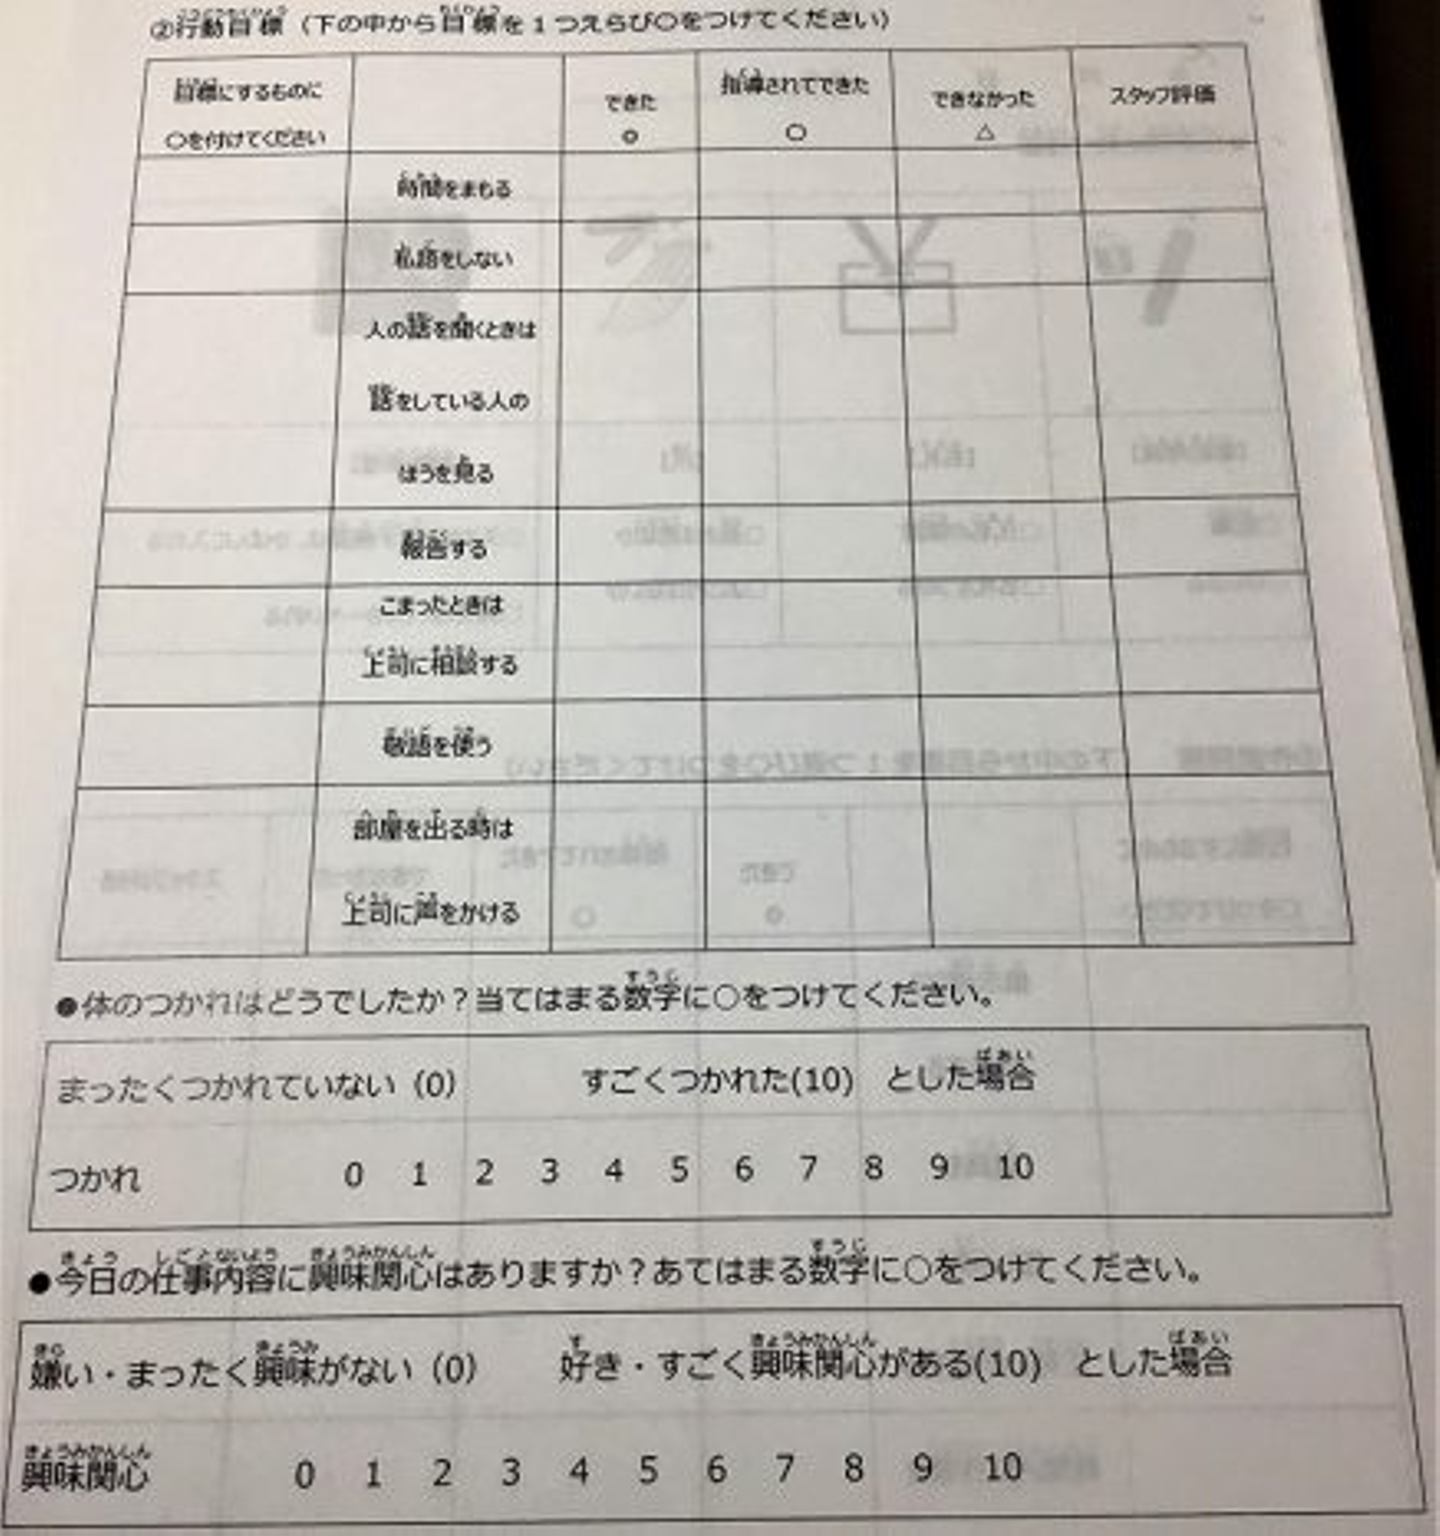 ②行動目標（下の中から目標を1つえらび○をつけてください）
目標にするものに
○を付けてください
できた
◎
指導されてできた
○
できなかった
△
スタッフ評価
時間をまもる
私語をしない
人の話を聞くときは
話をしている人の
ほうを見る
報告する
こまったときは
上司に相談する
敬語を使う
部屋を出る時は
上司に声をかける
●体のつかれはどうでしたか？当てはまる数字に○をつけてください。
まったくつかれていない（0） すごくつかれた(10) とした場合
つかれ 0 1 2 3 4 5 6 7 8 9 10
●今日の仕事内容に興味関心はありますか？あてはまる数字に○をつけてください。
嫌い・まったく興味がない（0） 好き・すごく興味関心がある(10) とした場合
興味関心 0 1 2 3 4 5 6 7 8 9 10